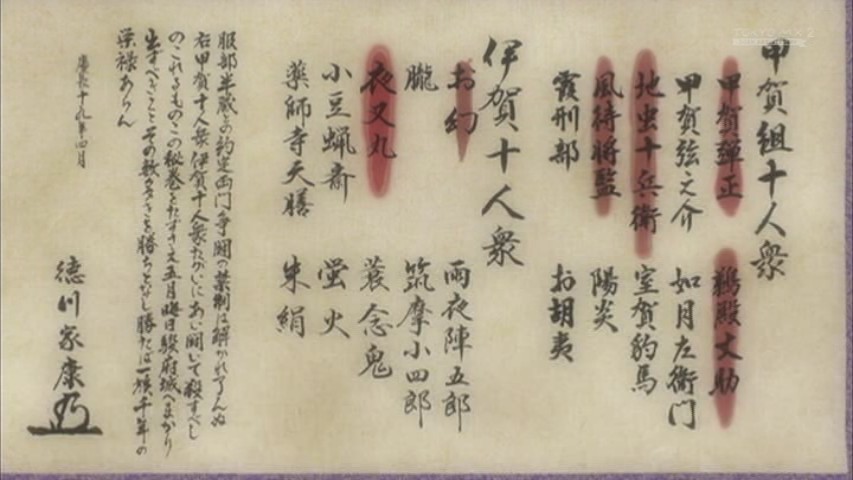 甲賀組十人衆
甲賀彈正 鵜殿丈助
甲賀弦之介 如月左衛門
地虫十兵衛 室賀豹馬
風待將監 陽炎
霞刑部 お胡夷
伊賀十人衆
お幻 雨夜陣五郎
朧 筑摩小四郎
夜叉丸 蓑念鬼
小豆蝋斎 螢火
薬師寺天膳 朱絹
服部半蔵との約定両門争闘の禁制は解かれ了んぬ
右甲賀十人衆伊賀十人衆たがいにあい闘いて殺すべし
のこれるものこの秘巻をたずさえ五月晦日駿府城へまかり
出ずべきことその数多きを勝ちとなし勝たば一族千年の
栄禄あらん
慶長十九年四月
徳川家康
TOKYO MX 2